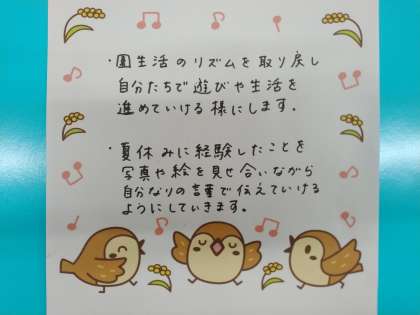 ・園生活のリズムを取り戻し
自分たちで遊びや生活を
進めていける様にします。
・夏休みに経験したことを
写真や絵を見せ合いながら
自分なりの言葉で伝えていける
ようにしていきます。